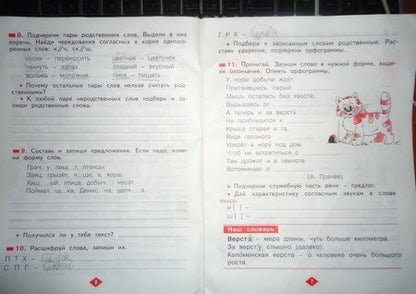 8. Подчеркни пары родственных слов. Выдели в них
корень. Найди чередования согласных в корне однокоренных
слов: к//ч, ск//щ.
носик – переносить цветник – цветочек
пахнуть – запах сладкий – вкусный
молоко – молочник писк – пищать
• Почему остальные пары слов нельзя считать родственными?
• К любой паре неродственных слов подбери и запиши родственные слова.
9. Составь и запиши предложения. Если надо, измени
форму слов.
Грач, у, пищ_т, птенцы.
Заяц, грызёт, ч_ще, в, кора.
Хищ_ый, птица, добыч_, несёт.
Поймал, щ_ка, Денис, на, удоч_а.
• Получился ли у тебя текст?
10. Расшифруй слова, запиши их.
П Т Х –
С П Г –
6
Г Р Х –
• Подбери к записанным словам родственные. Расставь
ударение, подчеркни орфограммы.
11. Прочитай. Запиши слово в нужной форме, выдели
окончание. Отметь орфограммы.
У норы добычи ждёт
Притаившись, серый
Мышь осталась без хвоста,
Вырываясь от
А теперь и за версту
Не приблизится к
Крыса старая и та,
Видя грозного
Удерёт в нору под дом,
Чтоб не встретиться с
Там дрожит и в темноте
Вспоминает о
(А. Грачёв)
• Подчеркни служебную часть речи – предлог.
• Дай характеристику согласным звукам в слове
мышь.
м [ ] –
ш [ ] –
Наш словарь
Верста – мера длины, чуть больше километра.
За версту слышно (далеко).
Коломенская верста – о человеке очень большого
роста.
7